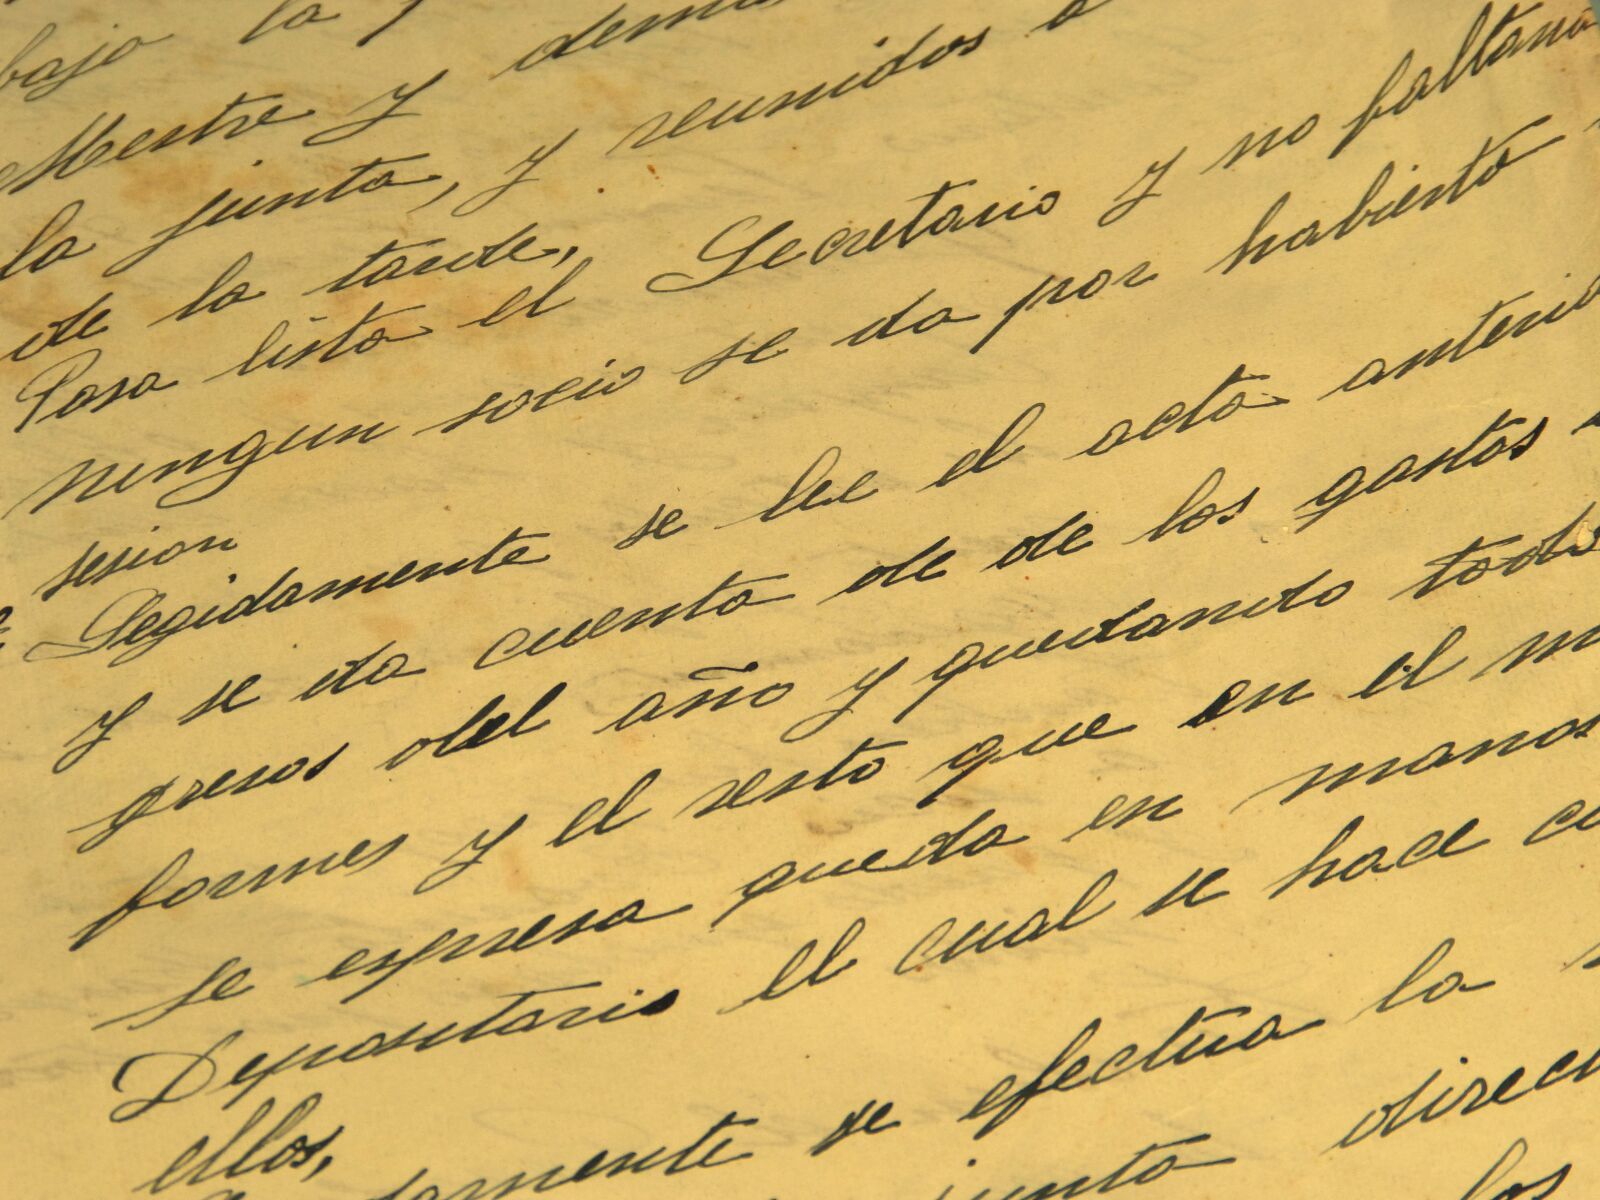 bajo la
Mestre y demas
la junta, y reunidos a
de la tarde,
Pasa lista el Secretario y no faltano
ningun socio se da por habierto
sesion
Segidamente se lee el acta anterio
y se da cuenta de de los gastos
gresos del año y quedando todo
formes y el resto que en el m
se espresa queda en manos
Depositario el cual se hace ca
ellos,
mente se efectua la
junta direct
los